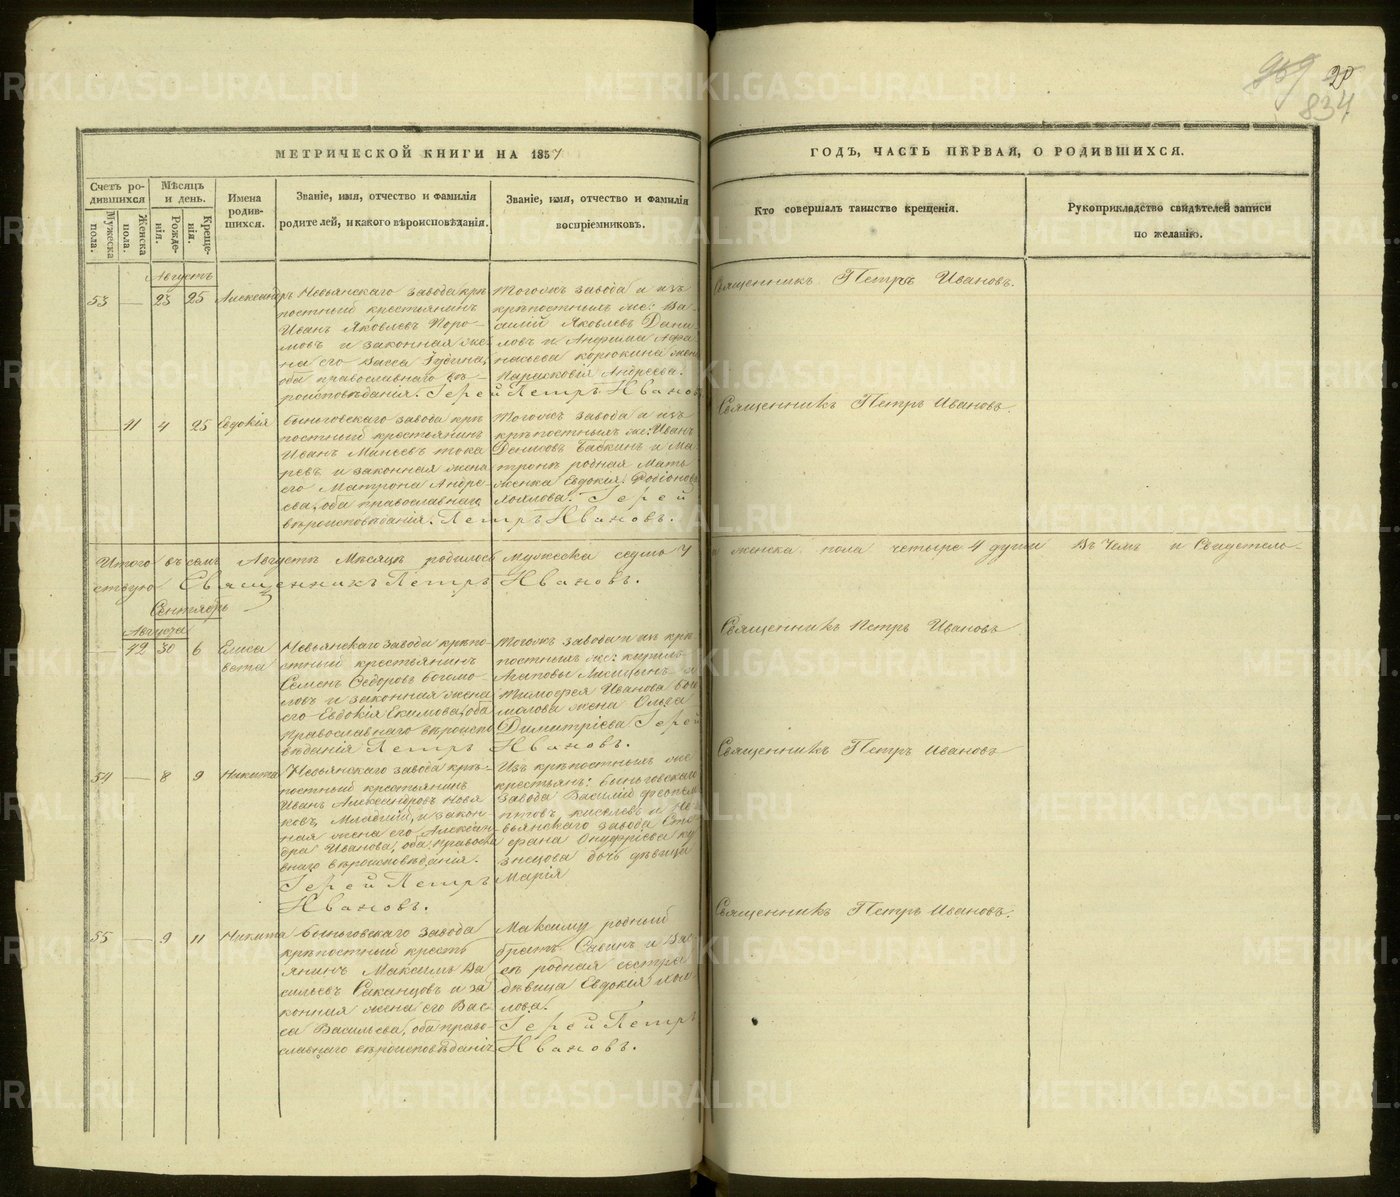 969 20
834
МЕТРИЧЕСКОЙ КНИГИ НА 1857
ГОДЪ, ЧАСТЬ ПЕРВАЯ, О РОДИВШИХСЯ.
Счетъ ро-
дившихся
Мужеска
пола.
Женска
пола.
Мѣсяцъ
и день.
Рожде-
нія.
Креще-
нія.
Имена
родив-
шихся.
Званіе, имя, отчество и фамилія
родителей, и какого вѣроисповѣданія.
Званіе, имя, отчество и фамилія
воспріемниковъ.
Кто совершалъ таинство крещенія.
Рукоприкладство свидѣтелей записи
по желанію.
Августъ
53 — 23 25 Александръ
Невьянскаго завода крѣ-
постный крестьянинъ
Иванъ Яковлевъ
мовъ и законная же-
на его Васса
оба православнаго вѣ-
роисповѣданія. Іерей Петръ Ивановъ
Тогожъ завода и изъ
крѣпостныхъ же: Ва-
силій Яковлевъ Дани-
ловъ и Анфима Афа-
насьева корюкина жена
Парасковія Андреева.
Священникъ Петръ Ивановъ.
— 41 4 25 Евдокія
Быньговскаго завода крѣ-
постный крестьянинъ
Иванъ тока
ревъ и законная жена
его Матрона Андре-
ева, оба православнаго
вѣроисповѣданія. Петръ Ивановъ.
Тогожъ завода и изъ
крѣпостныхъ же: Иванъ
Денисовъ Бабкинъ и Ма
тронѣ родная мать
женка Евдокія Родіонова
Хохлова. Іерей
Священникъ Петръ Ивановъ.
Итого въ семъ Августѣ мѣсяцѣ родилось мужеска седмь 7 и женска пола четыре 4 души въ чемъ и свидетель-
ствую Священникъ Петръ Ивановъ.
Сентябрь
Августа
— 42 30 6 Елиса
вета
Невьянскаго завода крѣпо-
стный крестьянинъ
Семенъ Ѳедоровъ богомо-
ловъ и законная жена
его Евдокія Екимова, оба
православнаго вѣроиспо
вѣданія Петръ Ивановъ.
Тогожъ завода и изъ крѣ
постныхъ же: кирилъ
Агаповъ Лисицынъ и
Тимофея Иванова Бого
молова жена Ольга
Димитріева Іерей
Священникъ Петръ Ивановъ
54 — 8 9 Никита
Невьянскаго завода крѣ-
постный крестьянинъ
Иванъ Александровъ Новя
ковъ, Младшій, и закон-
ная жена его Алексан-
дра Иванова, оба православ
наго вѣроисповѣданія.
Іерей Петръ
Ивановъ.
Изъ крѣпостныхъ же
крестьянъ: быньговскаго
завода Василій
киселевъ и Не
вьянскаго завода Сте
фана Онуфріева ку
знецова дочь дѣвица
Марія
Священникъ Петръ Ивановъ
55 — 9 11 Никита
Быньговскаго завода
крѣпостный кресть
янинъ Максимъ Ва
сильевъ Саканцовъ и за
конная жена его Вас-
са Васильева, оба право-
славнаго вѣроисповѣданія
Максиму родный
братъ Савинъ и Вас
сѣ родная сестра
дѣвица Евдокія Хох
лова.
Іерей Петръ
Ивановъ.
Священникъ Петръ Ивановъ.
METRIKI.GASO-URAL.RU